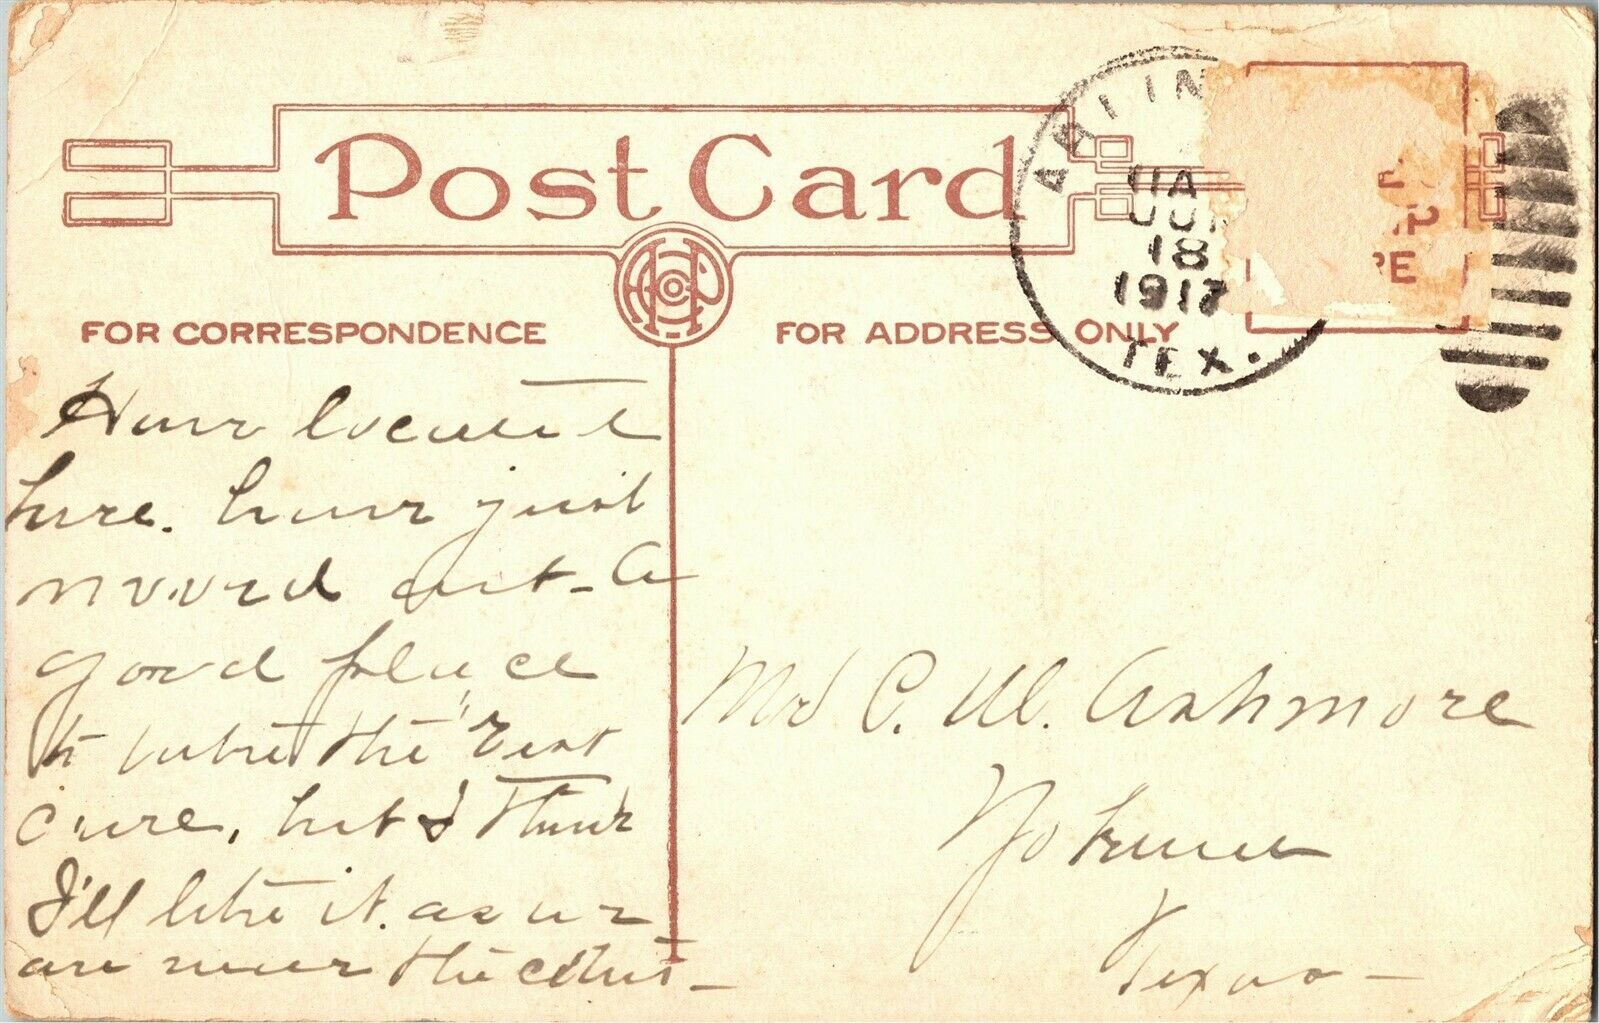 Post Card
FOR CORRESPONDENCE
FOR ADDRESS ONLY
ARLIN
11A
JU
18
1917
TEX.
Have located
here. have just
moved out - a
good place
to take the "rest
cure, but I think
I'll like it. as we
are near the
Mrs C. W. Ashmore
Yoakum
Texas -